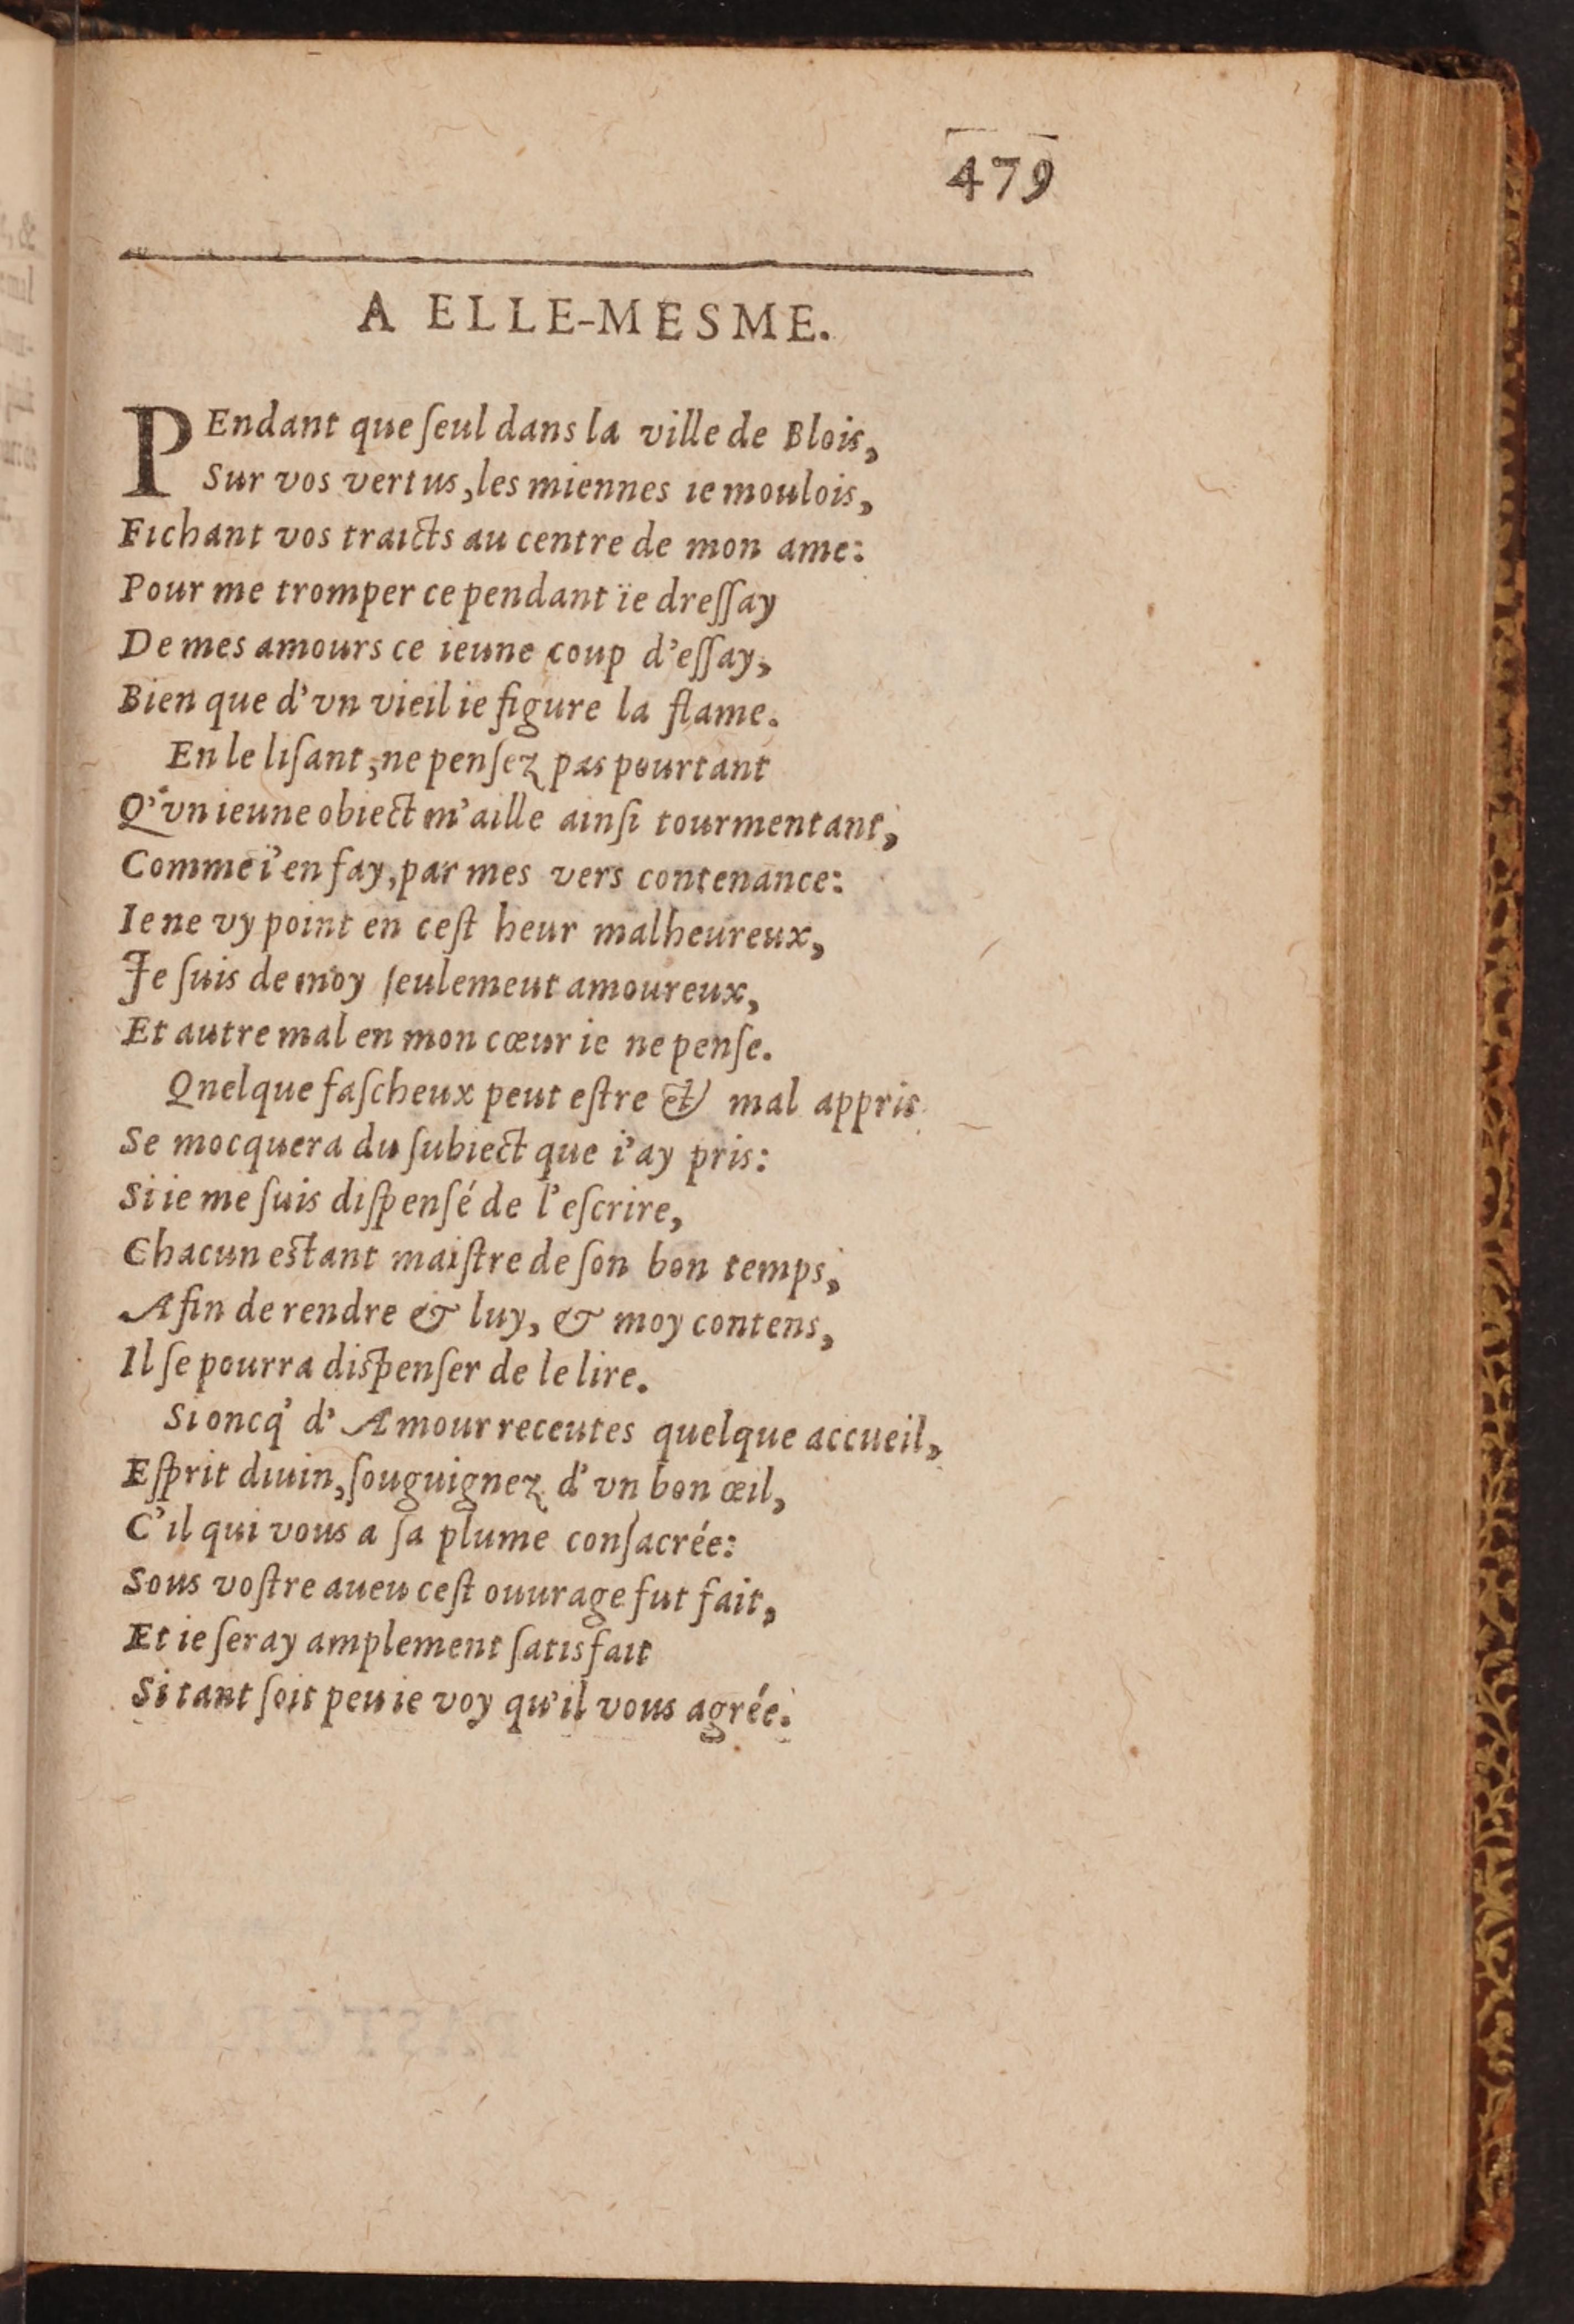 479
A ELLE-MESME.
PEndant que ſeul dans la ville de Blois,
Sur vos vertus, les miennes ie moulois,
Fichant vos traicts au centre de mon ame:
Pour me tromper ce pendant ïe dreſſay
De mes amours ce ieune coup d'eſſay,
Bien que d'vn vieil ie figure la flame.
En le liſant, ne penſez pas pourtant
Q'vn ieune obiect m'aille ainſi tourmentant,
Comme i'en fay, par mes vers contenance:
Ie ne vy point en ceſt heur malheureux,
Je ſuis de moy ſeulemeut amoureux,
Et autre mal en mon cœur ie ne penſe.
Qnelque faſcheux peut eſtre & mal appris
Se mocquera du ſubiect que i'ay pris:
Si ie me ſuis diſpenſé de l'eſcrire,
Chacun eſtant maiſtre de ſon bon temps,
Afin de rendre & luy, & moy contens,
Il ſe pourra diſpenſer de le lire.
Si oncq' d'Amour receutes quelque accueil,
Eſprit diuin, ſouguignez d'vn bon œil,
C'il qui vous a ſa plume conſacrée:
Sous voſtre aueu ceſt ouurage fut fait,
Et ie ſeray amplement ſatisfait
Si tant ſoit peu ie voy qu'il vous agrée.